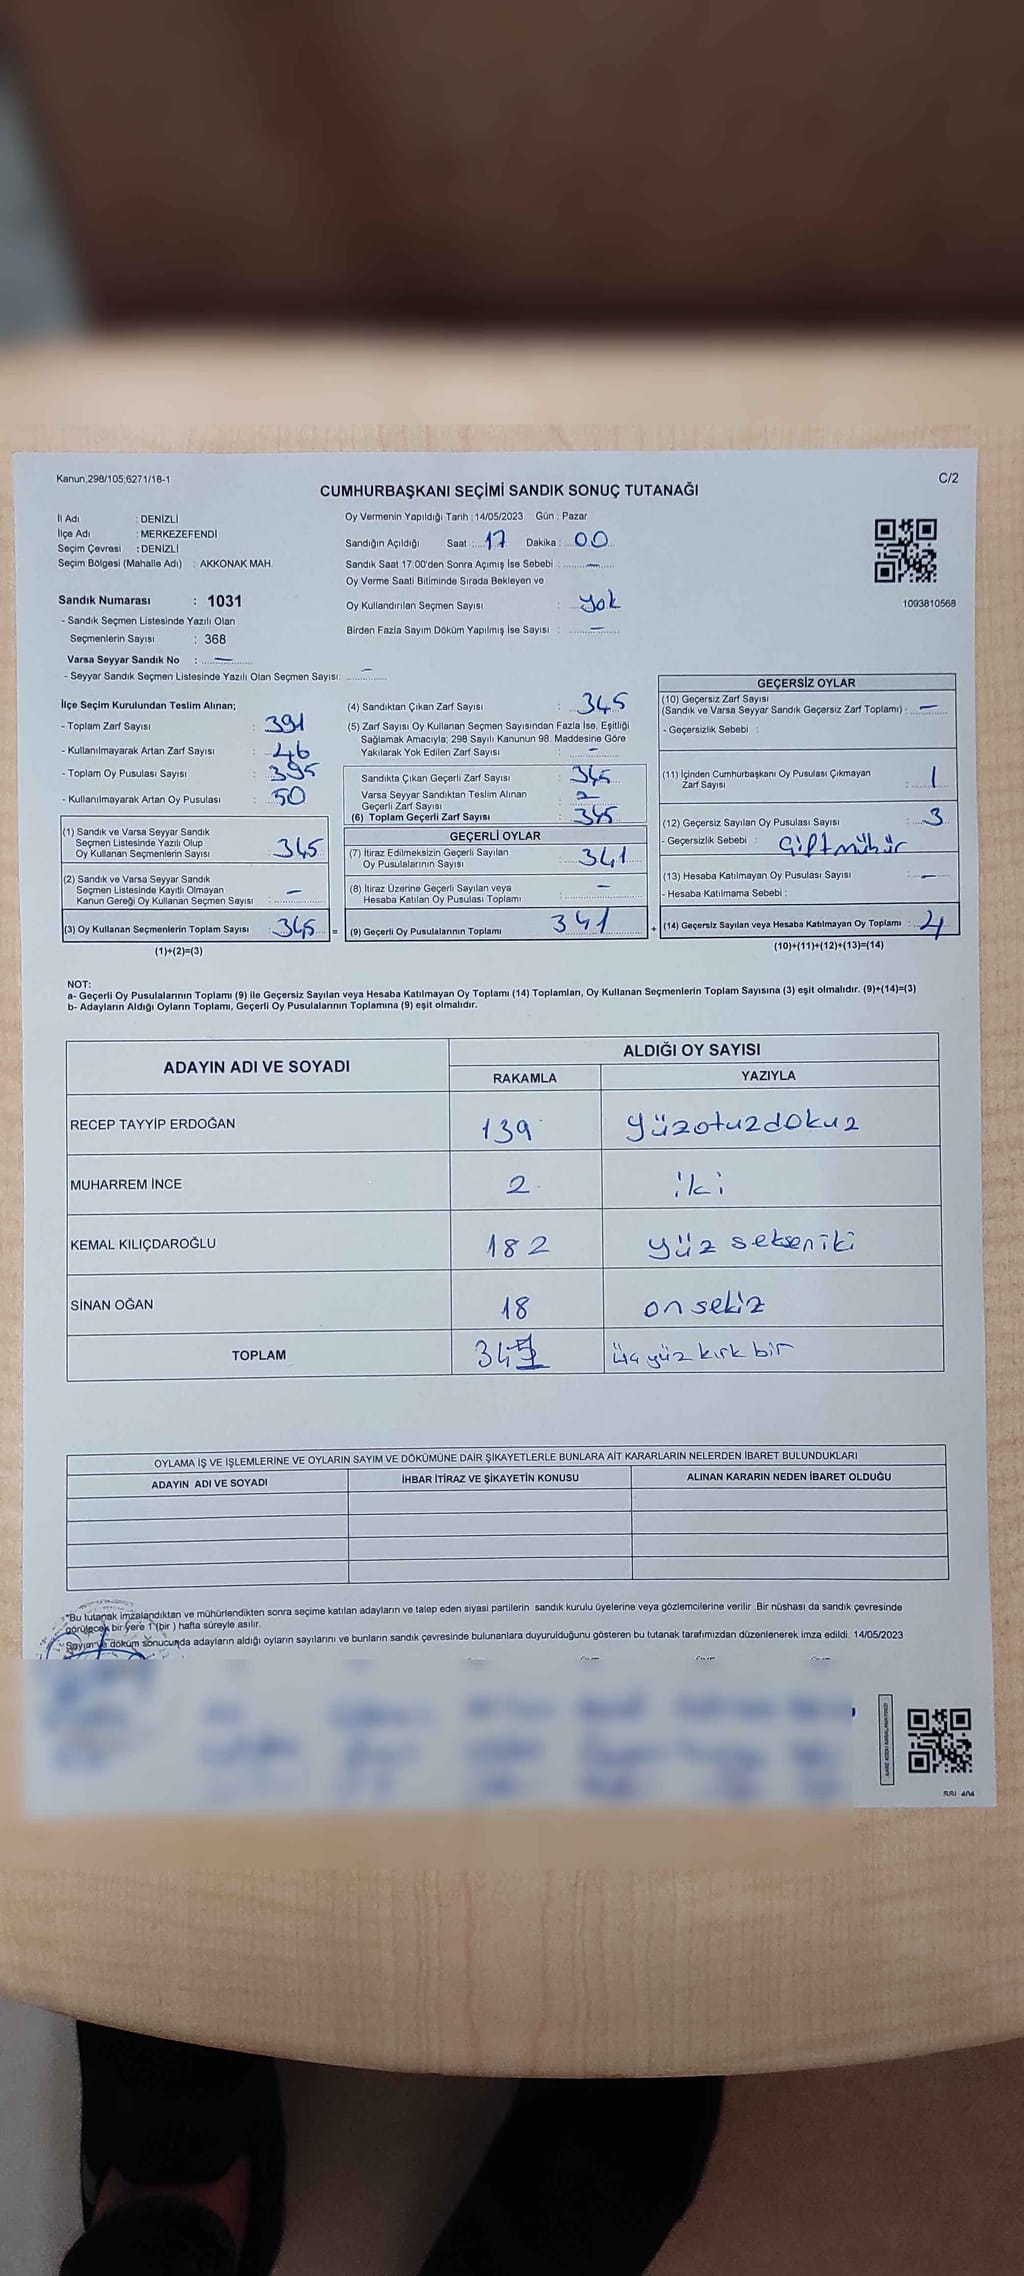 Kanun,298/105;6271/18-1
C/2
CUMHURBAŞKANI SEÇİMİ SANDIK SONUÇ TUTANAĞI
İl Adı : DENİZLİ
İlçe Adı : MERKEZEFENDİ
Seçim Çevresi : DENİZLİ
Seçim Bölgesi (Mahalle Adı) : AKKONAK MAH.
Sandık Numarası : 1031
- Sandık Seçmen Listesinde Yazılı Olan
Seçmenlerin Sayısı : 368
Varsa Seyyar Sandık No : —
- Seyyar Sandık Seçmen Listesinde Yazılı Olan Seçmen Sayısı: —
Oy Vermenin Yapıldığı Tarih : 14/05/2023 Gün : Pazar
Sandığın Açıldığı Saat : 17 Dakika : 00
Sandık Saat 17:00'den Sonra Açılmış İse Sebebi : —
Oy Verme Saati Bitiminde Sırada Bekleyen ve
Oy Kullandırılan Seçmen Sayısı : yok
Birden Fazla Sayım Döküm Yapılmış İse Sayısı : —
1093810568
İlçe Seçim Kurulundan Teslim Alınan;
- Toplam Zarf Sayısı : 391
- Kullanılmayarak Artan Zarf Sayısı : 46
- Toplam Oy Pusulası Sayısı : 395
- Kullanılmayarak Artan Oy Pusulası : 50
(1) Sandık ve Varsa Seyyar Sandık
Seçmen Listesinde Yazılı Olup
Oy Kullanan Seçmenlerin Sayısı : 345
(2) Sandık ve Varsa Seyyar Sandık
Seçmen Listesinde Kayıtlı Olmayan
Kanun Gereği Oy Kullanan Seçmen Sayısı : —
(3) Oy Kullanan Seçmenlerin Toplam Sayısı : 345 =
(1)+(2)=(3)
(4) Sandıktan Çıkan Zarf Sayısı : 345
(5) Zarf Sayısı Oy Kullanan Seçmen Sayısından Fazla İse, Eşitliği
Sağlamak Amacıyla; 298 Sayılı Kanunun 98. Maddesine Göre
Yakılarak Yok Edilen Zarf Sayısı : —
Sandıkta Çıkan Geçerli Zarf Sayısı : 345
Varsa Seyyar Sandıktan Teslim Alınan
Geçerli Zarf Sayısı :
(6) Toplam Geçerli Zarf Sayısı : 345
GEÇERLİ OYLAR
(7) İtiraz Edilmeksizin Geçerli Sayılan
Oy Pusulalarının Sayısı : 341
(8) İtiraz Üzerine Geçerli Sayılan veya
Hesaba Katılan Oy Pusulası Toplamı : —
(9) Geçerli Oy Pusulalarının Toplamı : 341 +
GEÇERSİZ OYLAR
(10) Geçersiz Zarf Sayısı
(Sandık ve Varsa Seyyar Sandık Geçersiz Zarf Toplamı) : —
- Geçersizlik Sebebi :
(11) İçinden Cumhurbaşkanı Oy Pusulası Çıkmayan
Zarf Sayısı : 1
(12) Geçersiz Sayılan Oy Pusulası Sayısı : 3
- Geçersizlik Sebebi : Çift mühür
(13) Hesaba Katılmayan Oy Pusulası Sayısı : —
- Hesaba Katılmama Sebebi :
(14) Geçersiz Sayılan veya Hesaba Katılmayan Oy Toplamı : 4
(10)+(11)+(12)+(13)=(14)
NOT:
a- Geçerli Oy Pusulalarının Toplamı (9) ile Geçersiz Sayılan veya Hesaba Katılmayan Oy Toplamı (14) Toplamları, Oy Kullanan Seçmenlerin Toplam Sayısına (3) eşit olmalıdır. (9)+(14)=(3)
b- Adayların Aldığı Oyların Toplamı, Geçerli Oy Pusulalarının Toplamına (9) eşit olmalıdır.
ADAYIN ADI VE SOYADI ALDIĞI OY SAYISI
RAKAMLA YAZIYLA
RECEP TAYYİP ERDOĞAN 139 yüzotuzdokuz
MUHARREM İNCE 2 iki
KEMAL KILIÇDAROĞLU 182 yüz sekseniki
SİNAN OĞAN 18 on sekiz
TOPLAM 341 üçyüz kırk bir
OYLAMA İŞ VE İŞLEMLERİNE VE OYLARIN SAYIM VE DÖKÜMÜNE DAİR ŞİKAYETLERLE BUNLARA AİT KARARLARIN NELERDEN İBARET BULUNDUKLARI
ADAYIN ADI VE SOYADI İHBAR İTİRAZ VE ŞİKAYETİN KONUSU ALINAN KARARIN NEDEN İBARET OLDUĞU
*Bu tutanak imzalandıktan ve mühürlendikten sonra seçime katılan adayların ve talep eden siyasi partilerin sandık kurulu üyelerine veya gözlemcilerine verilir. Bir nüshası da sandık çevresinde
görülecek bir yere 1 (bir ) hafta süreyle asılır.
Sayım ve döküm sonucunda adayların aldığı oyların sayılarını ve bunların sandık çevresinde bulunanlara duyurulduğunu gösteren bu tutanak tarafımızdan düzenlenerek imza edildi. 14/05/2023